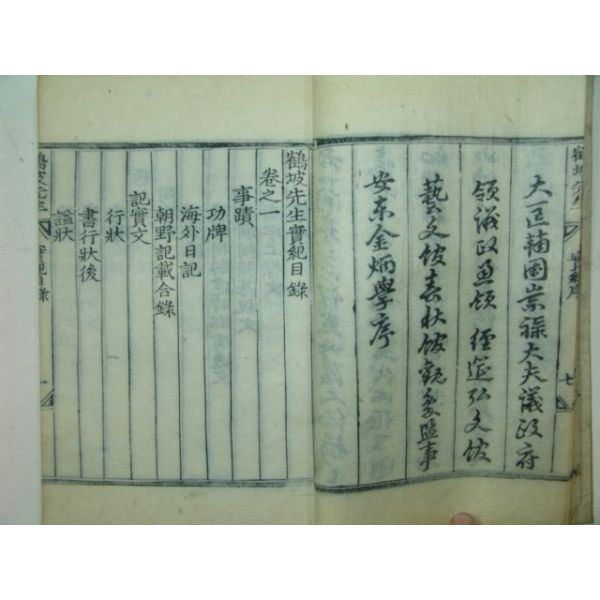 七
大匡輔國崇祿大夫議政府
領議政兼領 經筵弘文館
藝文館春秋館觀象監事
安東金炳學序
鶴坡先生實紀目錄
卷之一
事蹟
功牌
海外日記
朝野記載合錄
記實文
行狀
書行狀後
諡狀
實紀目錄 一